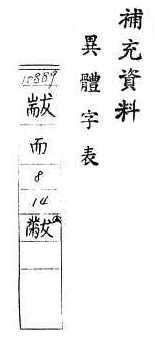 補充資料
異體字表
15889
而
8
14
黻